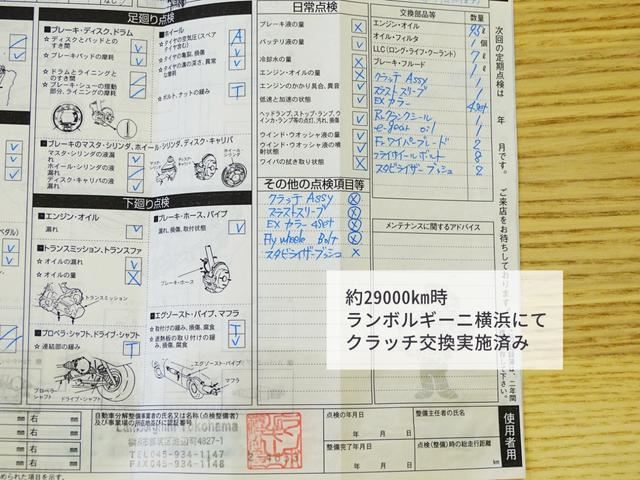 足廻り点検
■ブレーキ・ディスク、ドラム
☆ディスクとパッドとのすき間
☆ブレーキパッドの摩耗
☆ドラムとライニングとのすき間
☆ブレーキ・シューの摺動部分、ライニングの摩耗
■ホイール
☆タイヤの空気圧(スペアタイヤ含む)
☆タイヤの亀裂、損傷
☆タイヤの溝の深さ、異常な摩耗
☆ボルト、ナットの緩み
■ブレーキのマスタ・シリンダ、ホイール・シリンダ、ディスク・キャリパ
マスタ・シリンダの液漏れ
ホイール・シリンダの液漏れ
ディスク・キャリパの液漏れ
マスタ・シリンダ
ホイール・シリンダ
下廻り点検
■エンジン・オイル
漏れ
■トランスミッション、トランスファ
☆オイルの漏れ
☆オイルの量
トランスミッション
■プロペラ・シャフト、ドライブ・シャフト
☆連結部の緩み
プロペラ・シャフト
ドライブ・シャフト
■ブレーキ・ホース、パイプ
漏れ、損傷、取付状態
ブレーキ・ホース
■エグゾースト・パイプ、マフラ
☆取付けの緩み、損傷、腐食
☆遮熱板の取付けの緩み、損傷、腐食
エグゾースト・パイプ
マフラ
日常点検
ブレーキ液の量
バッテリ液の量
冷却水の量
エンジン・オイルの量
エンジンのかかり具合、異音
低速と加速の状態
ヘッドランプ、ストップ・ランプ、ウインカ・ランプ等の点灯、汚れ、損傷
ウインド・ウオッシャ液の量
ウインド・ウオッシャ液の噴射状態
ワイパの拭き取り状態
その他の点検項目等
クラッチ Assy
ラストスリーブ
EX カラー 4set
Fly wheele Bolt
スタビライザーブッシュ
交換部品等
数量
エンジン・オイル
オイル・フィルタ
LLC(ロング・ライフ・クーラント)
ブレーキ・フルード
クラッチ Assy
ラストスリーブ
EX カラー
4set
e-gear oil
Fr ワイパーブレード
フライホイールボルト
8
スタビライザー ブッシュ
2
次回の定期点検は
年
月です。
ご来店をお待ちしております。
メンテナンスに関するアドバイス
約29000km時
ランボルギーニ横浜にて
クラッチ交換実施済み
自動車分解整備事業者の氏名又は名称(点検整備者)及び事業場の所在地並びに認証番号
Lamborghini Yokohama
TEL045-934-1147
FAX045-934-1148
点検の年月日
年 月 日
整備完了年月日
年 月 日
整備主任者の氏名
点検(整備)時の総走行距離
km
使用者用